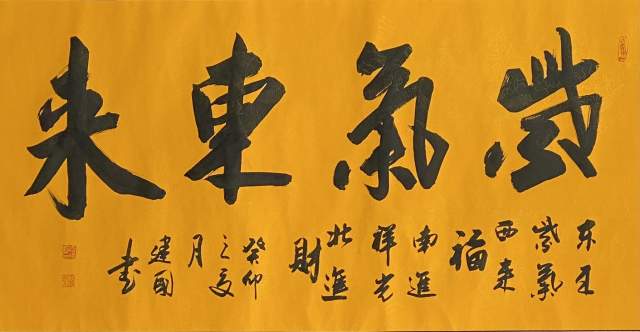 紫氣東来
东至
紫氣
西来
福
南進
祥光
北進
財
癸卯
之夏
月
建國
书